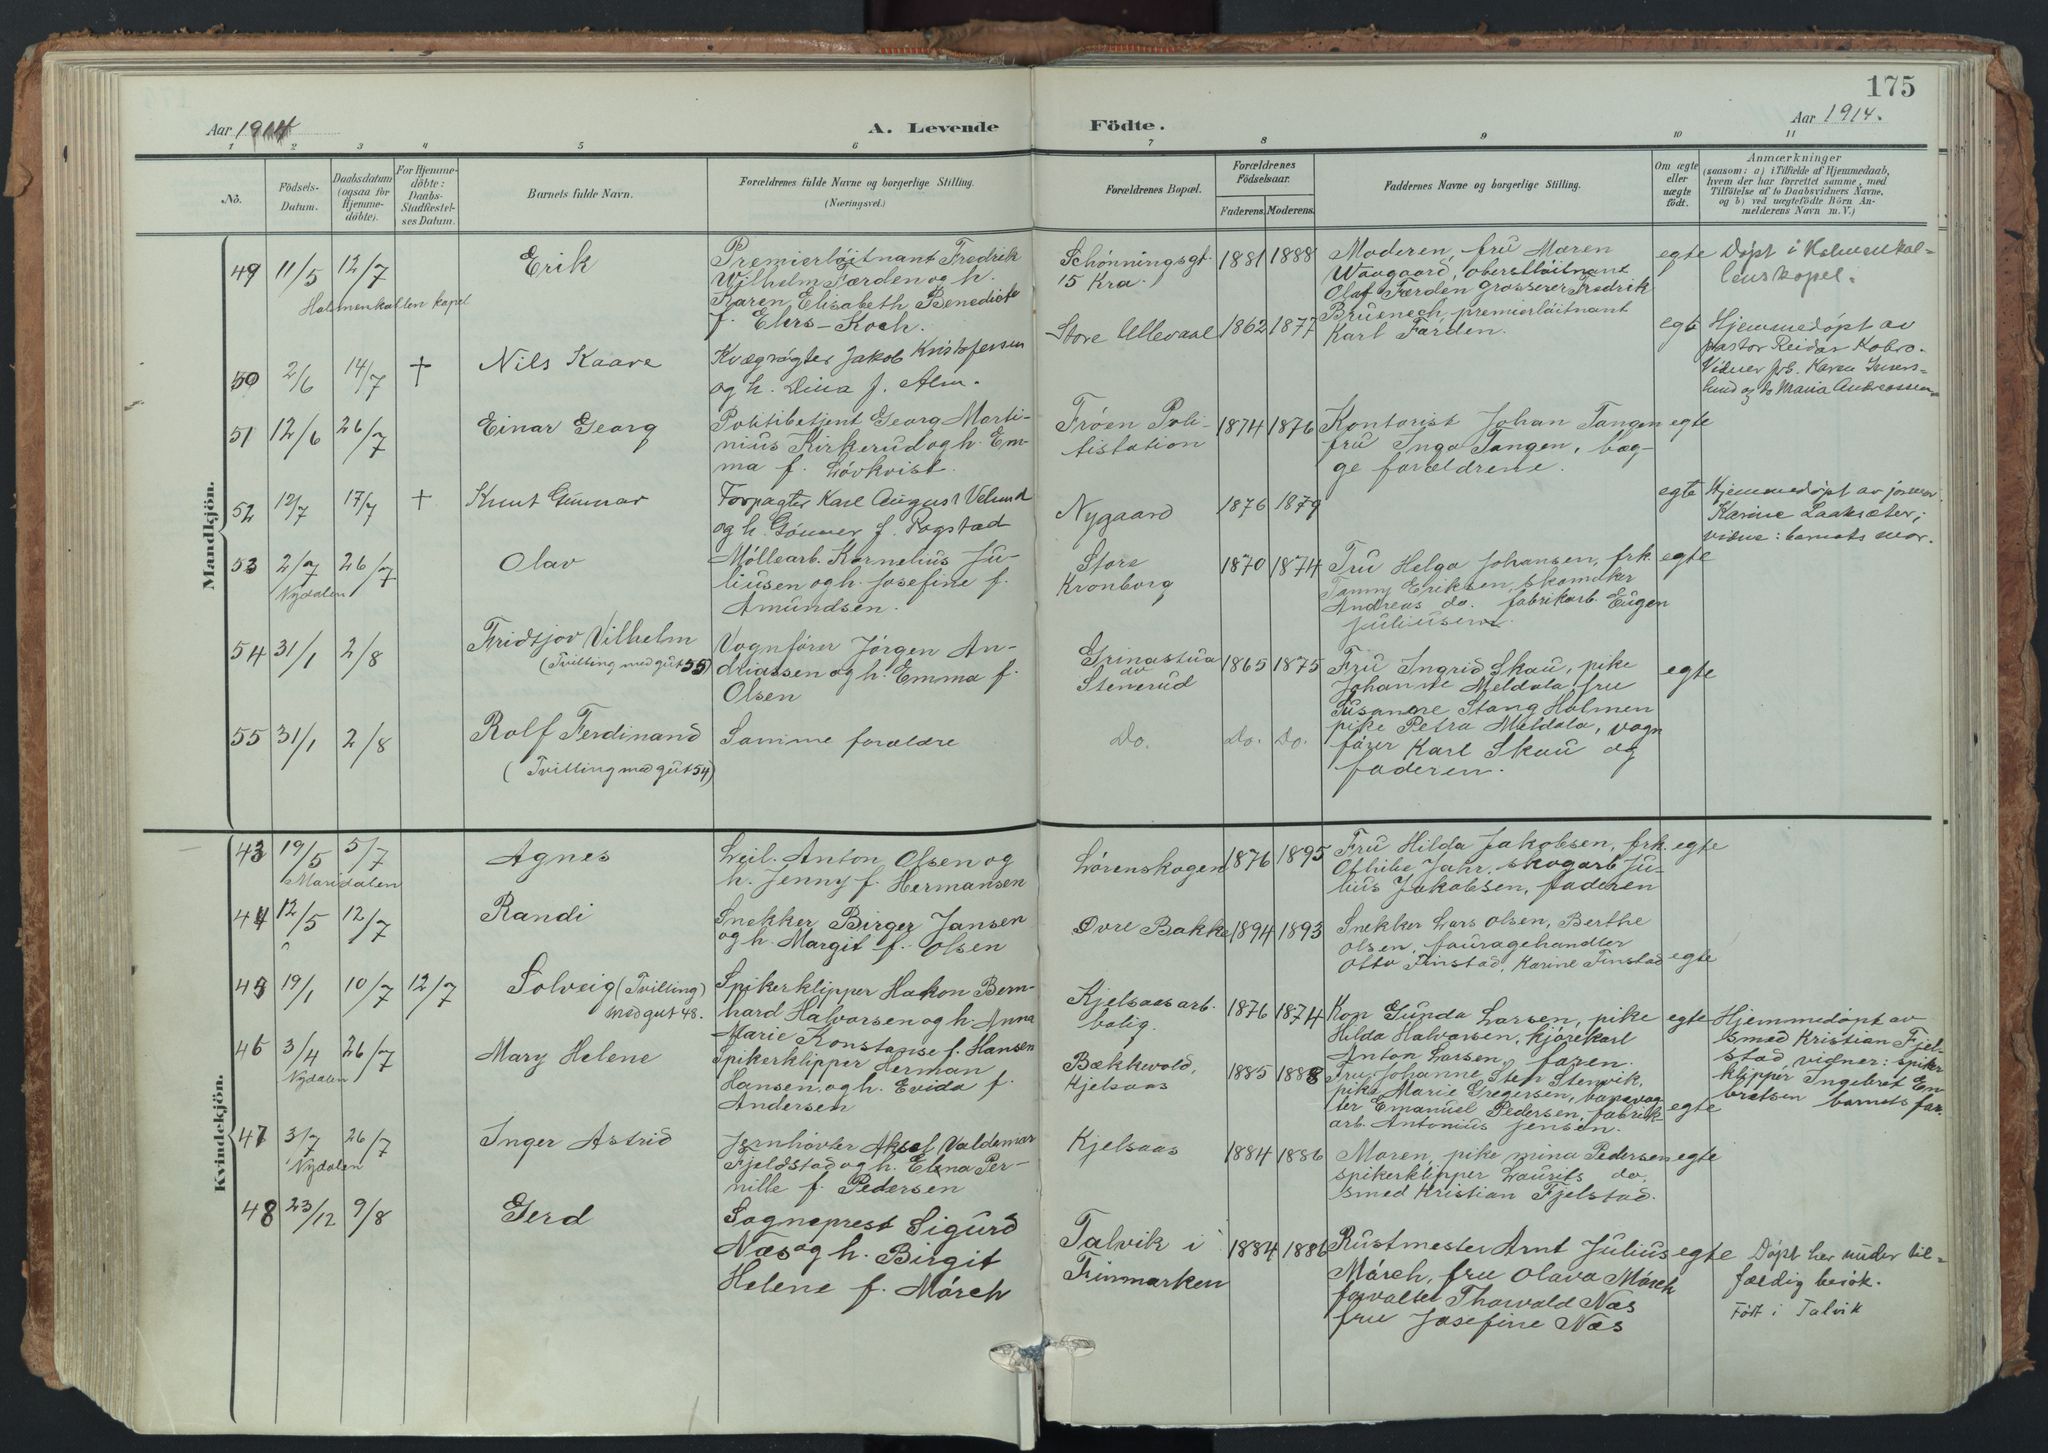 175
Aar 1914
A. Levende
Födte.
Aar 1914.
1 2 3 4 5 6 7 8 9 10 11
No.
Födsels-
Datum.
Daabsdatum
(ogsaa for
Hjemme-
døbte).
For Hjemme-
døbte:
Daabs-
Stadfæstel-
ses Datum.
Barnets fulde Navn.
Forældrenes fulde Navne og borgerlige Stilling.
(Næringsvei.)
Forældrenes Bopæl.
Forældrenes
Födselsaar.
Faderens. Moderens.
Faddernes Navne og borgerlige Stilling.
Om ægte
eller
uægte
födt.
Anmærkninger
(saasom: a) i Tilfælde af Hjemmedaab,
hvem der har forrettet samme, med
Tilföielse af to Daabsvidners Navne,
og b) ved uægtefödte Börn An-
melderens Navn m. V.)
Mandkjön.
49 11/5 12/7
Holmenkollen kapel
Erik
Premierløitnant Fredrik
Wilhelm Færden og h.
Karen Elisabeth Benedicte
f. Ehrs-Koch.
Schønningsgt.
15 Kra.
1881 1888
Moderen, fru Maren
Waagaard, oberstløitnant
Olaf Færden grosserer Fredrik
Bruenech, premierløitnant
Karl Færden.
egte
Døpt i Holmenkol-
lenskapel.
50 2/6 14/7 †
Nils Kaare
Kvægrøgter Jakob Kristofersen
og h. Dina f. Alm.
Store Ullevaal
1862 1877
egte
Hjemmedøpt av
pastor Reidar Kobro.
Vidner frk. Karen
og do Maria Andreassen
51 12/6 26/7
Einar Georg
Politibetjent Georg Marti-
nius Kirkerud og h. Em-
ma f. Løvkvist.
Frøen Poli-
tistation
1874 1876
Kontorist Johan Tangen
fru Inga Tangen, beg-
ge forældrene.
egte
52 12/7 17/7 †
Knut Gunnar
Forpagter Karl August Velund
og h. Gunver f. Rogstad
Nygaard
1876 1879
egte
Hjemmedøpt av jormor
Karine Laaksæter;
vidne: barnets mor.
53 2/7 26/7
Nydalen
Olav
Møllearb. Kornelius Ju-
liussen og h. Josefine f.
Amundsen.
Store
Kronborg
1870 1874
Fru Helga Johansen, frk.
Fanny Eriksen, skomaker
Andreas do. fabrikarb. Eugen
Juliussen
egte
54 31/1 2/8
Fridtjov Vilhelm
(Tvilling med gut 55)
Vognfører Jørgen An-
dreassen og h. Emma f.
Olsen
Grinastua
av
Stenerud
1865 1875
Fru Ingrid Skau, pike
Johanne Meldala, fru
Susanne Stang Holmen
pike Petra Meldala, vogn
fører Karl Skau og
faderen.
egte
55 31/1 2/8
Rolf Ferdinand
(Tvilling med gut 54)
Samme forældre
Do.
Do. Do.
Kvindekjön.
43 19/5 5/7
Maridalen
Agnes
Leil. Anton Olsen og
h. Jenny f. Hermansen
Lørenskogen
1876 1895
Fru Hilda Jakobsen, frk.
Othilie Jahr, skogarb. Ju-
lius Jakobsen, faderen
egte
44 12/5 12/7
Randi
Snekker Birger Jansen
og h. Margit f. Olsen
Øvre Bakke
1894 1893
Snekker Lars Olsen, Berthe
Olsen, fouragehandler
Otto Finstad, Karine Finstad
egte
45 19/1 10/7 12/7
Solveig (Tvilling)
med gut 48.
Spikerklipper Hakon Bern-
hard Halvorsen og h. Anna
Marie Konstanse f. Hansen
Kjelsaas arb.
bolig.
1876 1874
Kon Gunda Larsen, pike
Hilda Halvorsen, kjørekarl
Anton Larsen, faren.
egte
Hjemmedøpt av
smed Kristian Fjel-
stad, vidner: spiker
klipper Ingebret En-
bretsen barnets far.
46 3/4 26/7
Nydalen
Mary Helene
Spikerklipper Herman
Hansen, og h. Evida f.
Andersen
Bækkevold,
Kjelsaas
1885 1888
Fru Johanne Sten Stenvik,
pike Marie Gregersen,
Emanuel Pedersen, fabrik
arb. Antonius Jensen.
egte
47 3/7 26/7
Nydalen
Inger Astrid
Jernhøvler Aksel Valdemar
Fjeldstad og h. Elena Per-
nille f. Pedersen
Kjelsaas
1884 1886
Moren, pike Mina Pedersen
spikerklipper Laurits do.
smed Kristian Fjelstad.
egte
48 23/12 9/8
Gerd
Sogneprest Sigurd
Næs og h. Birgit
Helene f. Mørch
Talvik i
Finmarken
1884 1886
Rustmester Arnt Julius
Mørch, fru Olava Mørch
forvalter Thorvald Næs
fru Josefine Næs
egte
Døpt her under til-
fældig besøk.
Født i Talvik